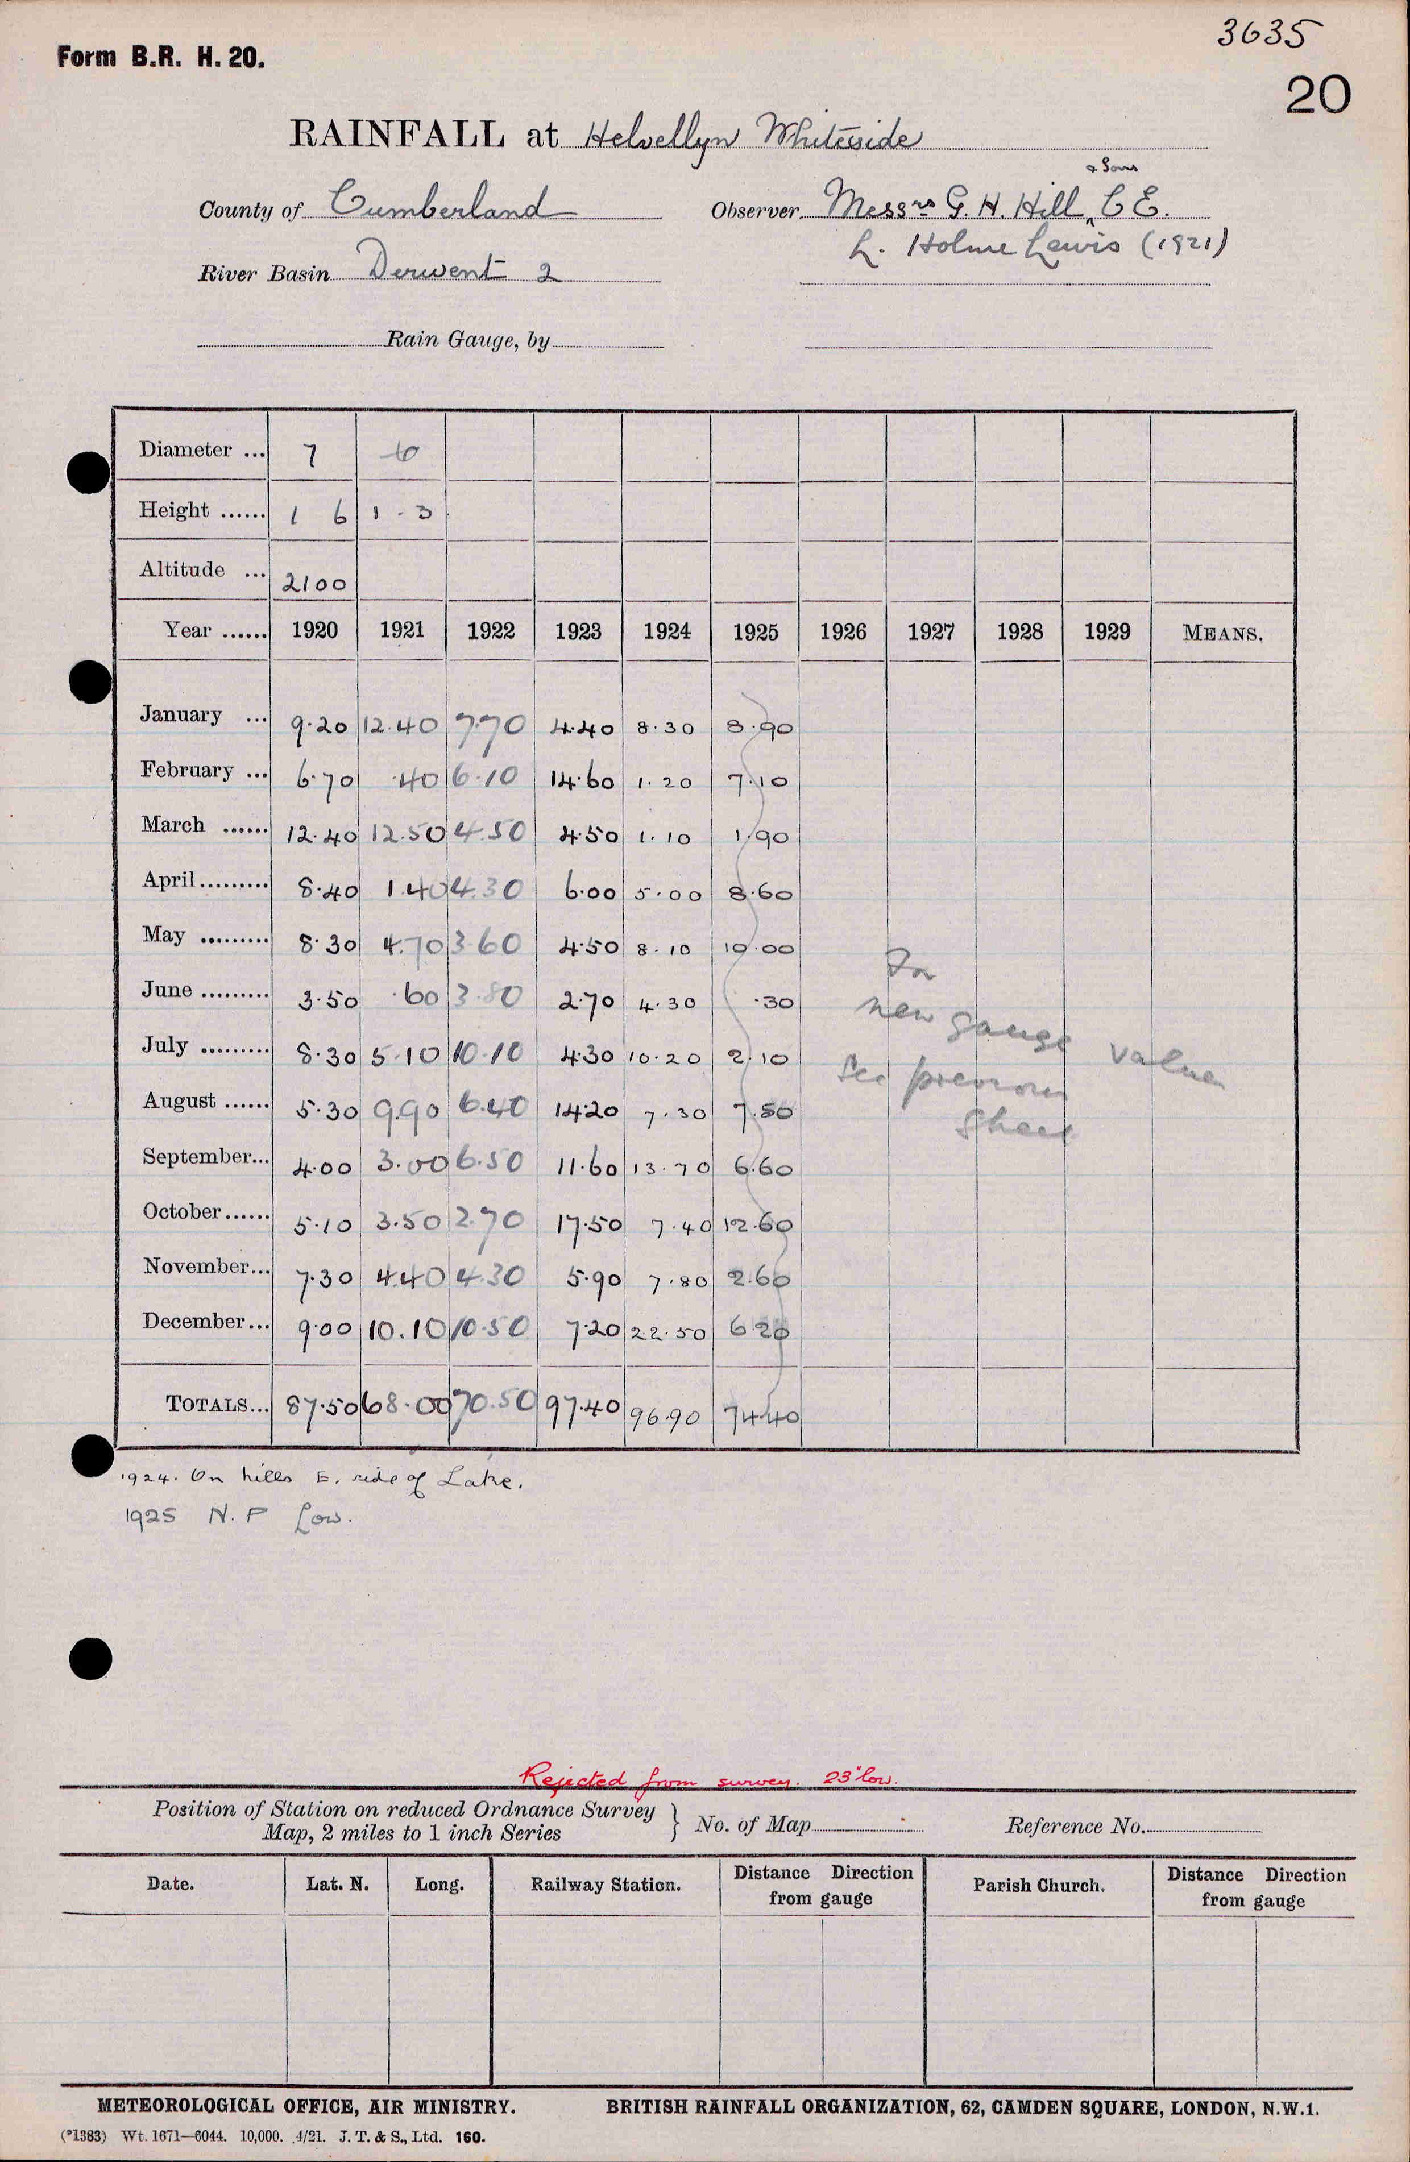 3635
Form B.R. H. 20.
20
RAINFALL at Helvellyn Whiteside
& Sons
County of Cumberland Observer Messrs G. H. Hill, C E.
L. Holme Lewis (1921)
River Basin Derwent 2
Rain Gauge, by
Diameter ... 7 6
Height ...... 1 6 1 - 3
Altitude ... 2100
Year ...... 1920 1921 1922 1923 1924 1925 1926 1927 1928 1929 MEANS.
January ... 9.20 12.40 7.70 4.40 8.30 8.90
February ... 6.70 .40 6.10 14.60 1.20 7.10
March ...... 12.40 12.50 4.50 4.50 1.10 1.90
April ......... 8.40 1.40 4.30 6.00 5.00 8.60
May ......... 8.30 4.70 3.60 4.50 8.10 10.00
June ......... 3.50 .60 3.80 2.70 4.30 .30
July ......... 8.30 5.10 10.10 4.30 10.20 2.10
August ...... 5.30 9.90 6.40 14.20 7.30 7.50
September... 4.00 3.00 6.50 11.60 13.70 6.60
October...... 5.10 3.50 2.70 17.50 7.40 12.60
November... 7.30 4.40 4.30 5.90 7.80 2.60
December... 9.00 10.10 10.50 7.20 22.50 6.20
TOTALS... 87.50 68.00 70.50 97.40 96.90 74.40
For
new gauge values
See previous
Sheet
1924. On hills E. side of Lake.
1925 N. F Low.
Rejected from survey. 23" low.
Position of Station on reduced Ordnance Survey
Map, 2 miles to 1 inch Series } No. of Map Reference No.
Date. Lat. N. Long. Railway Station. Distance Direction
from gauge Parish Church. Distance Direction
from gauge
METEOROLOGICAL OFFICE, AIR MINISTRY. BRITISH RAINFALL ORGANIZATION, 62, CAMDEN SQUARE, LONDON, N.W.1.
(*1383) Wt. 1671—6044. 10,000. 4/21. J. T. & S., Ltd. 160.